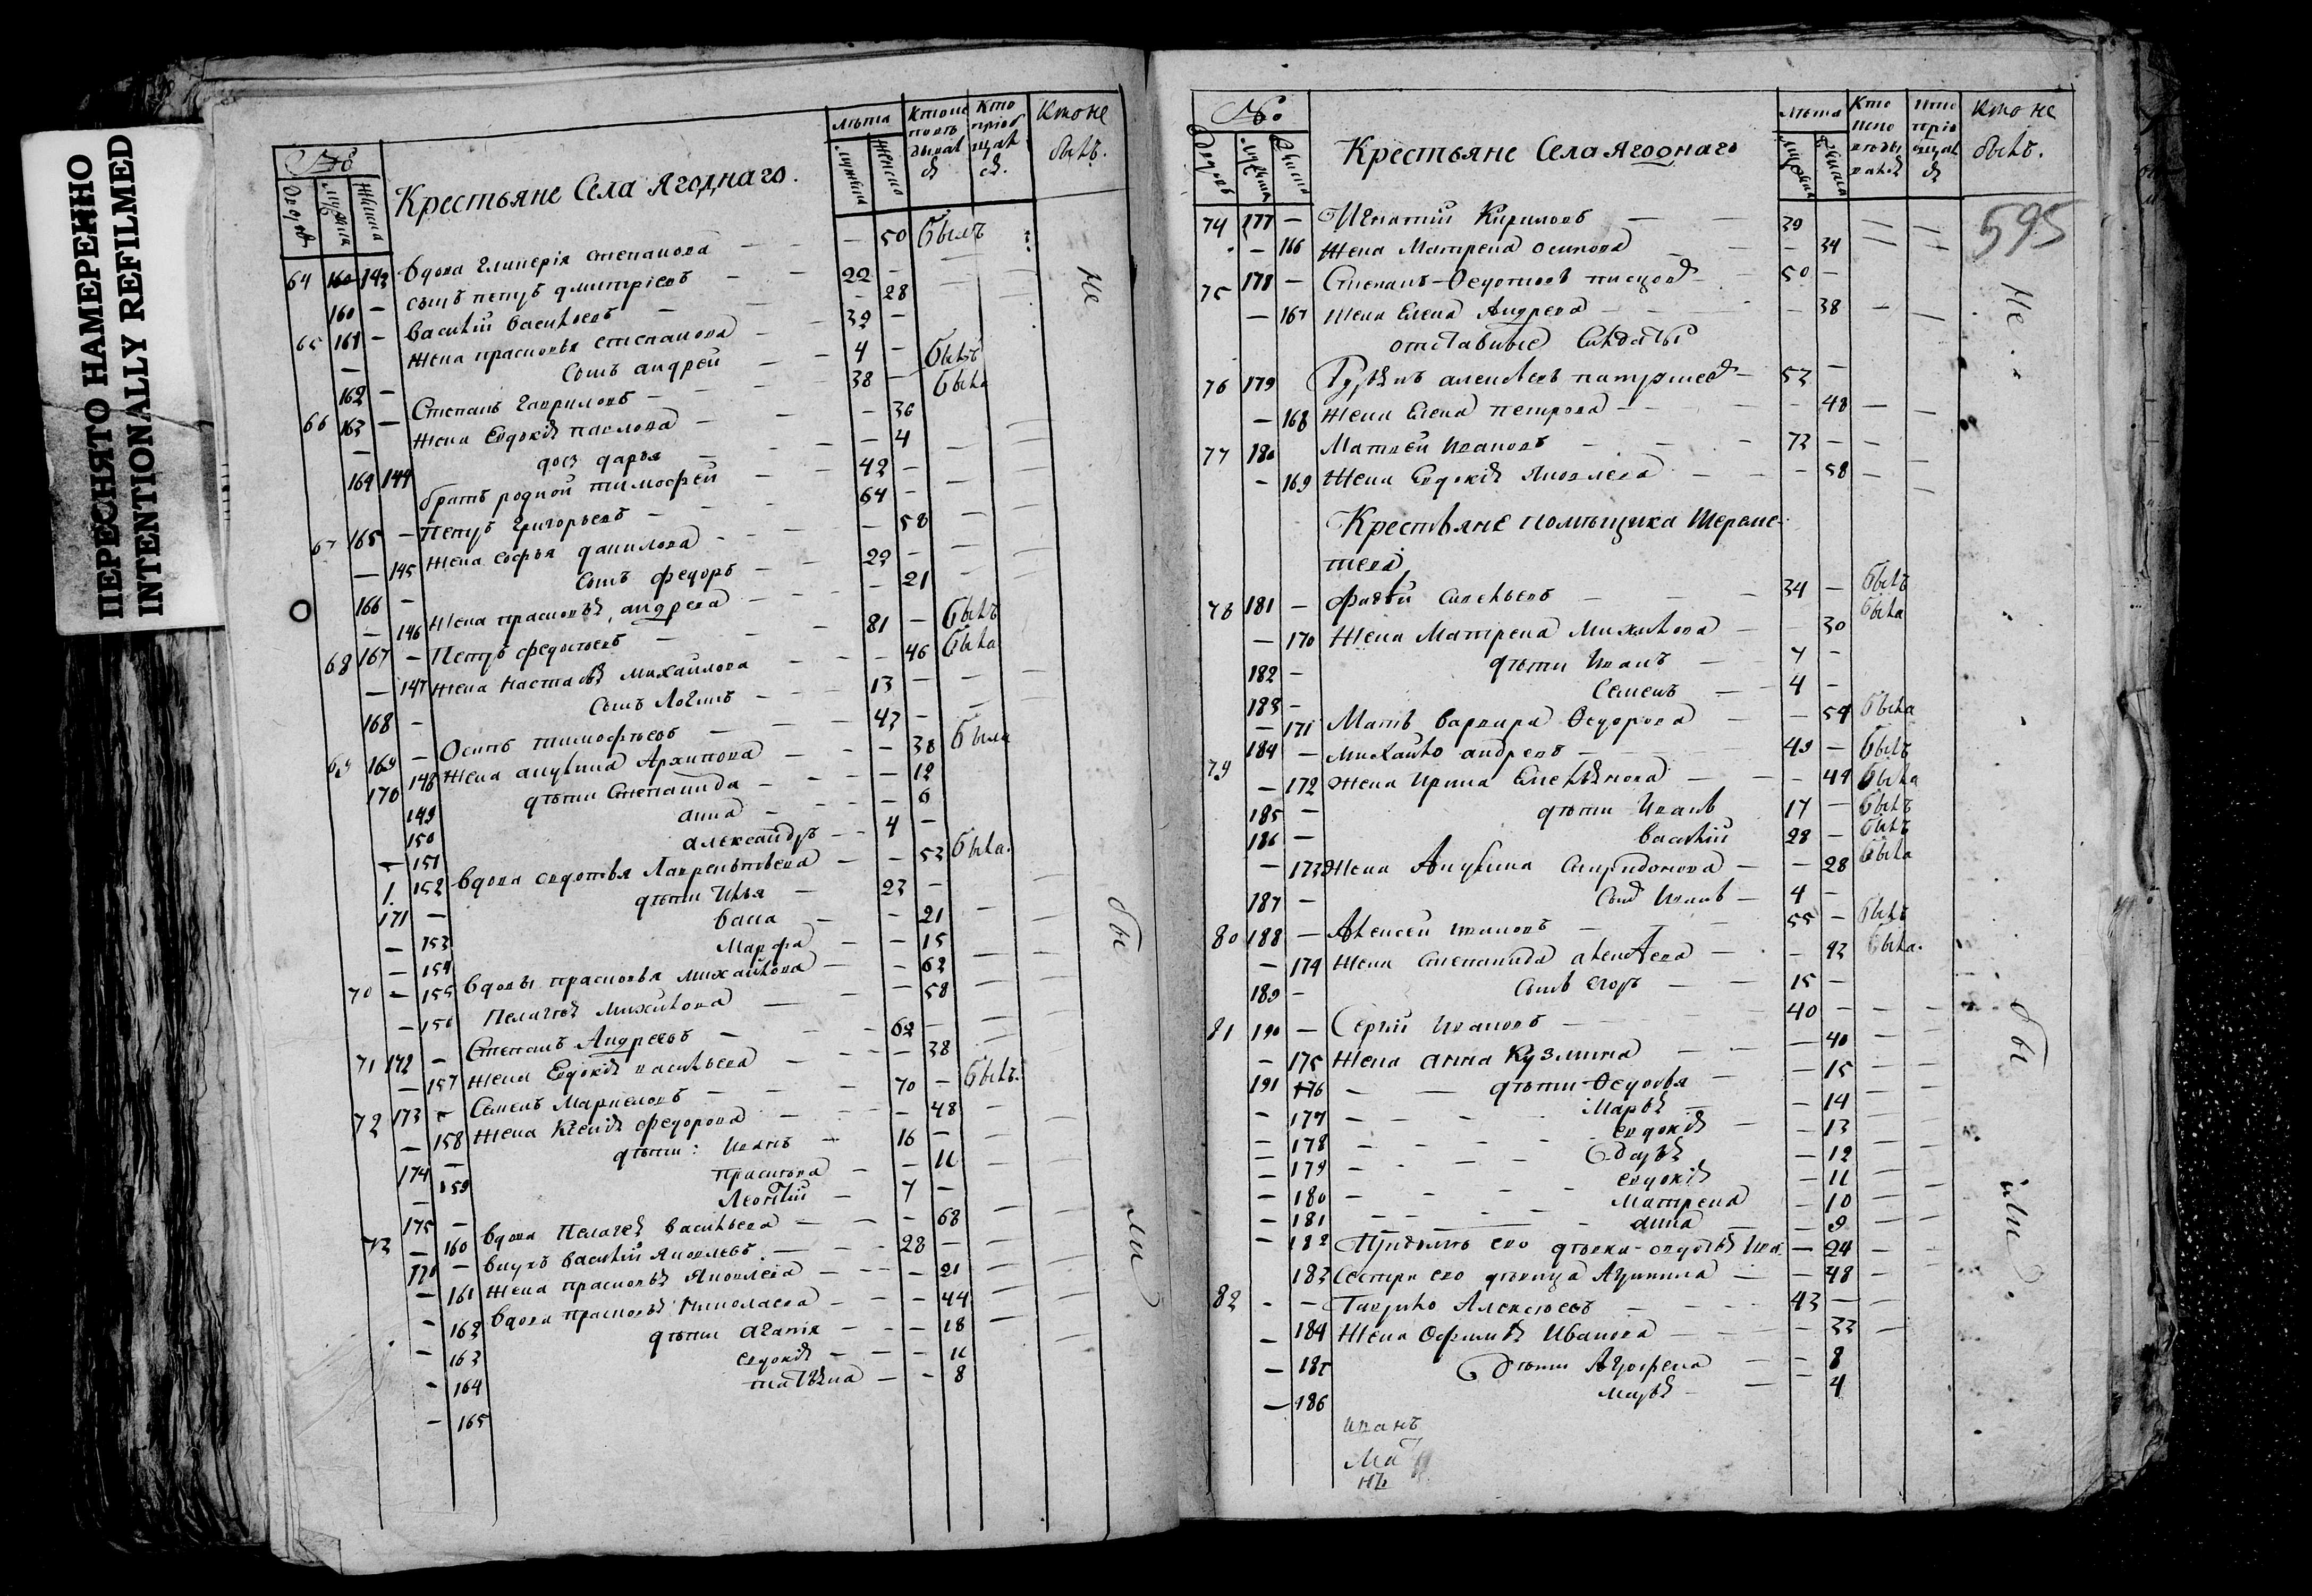 ПЕРЕСНЯТО НАМЕРЕННО
INTENTIONALLY REFILMED
№
Дворов
Мужска
Женска
Крестьяне Села Ягоднаго.
лѣта
мужска
женско
Кто не
былъ.
64 160 143 вдова Гликерія Степанова — 50 былъ
160 — сынъ петръ дмитріевъ — 22 —
28
65 161 — василій васильевъ — 32 —
— жена прасковья степанова
162 — Сынъ андрей — 4 — былъ
66 163 — Степанъ Гавриловъ — 38 — была
— жена Евдокія павлова — 36
дочь дарья — 4
164 144 братъ родной тимофей — 42 —
67 165 — Петръ Григорьевъ — 64 —
— 145 жена софья данилова — 58
166 — Сынъ федоръ — 22 —
— 146 жена прасковья андреева — 21
68 167 — Петръ федотовъ — 81 — былъ
— 147 жена настасья михайлова — 46 была
168 — Сынъ Логинъ — 13 —
69 169 — Осипъ тимофѣевъ — 43 —
170 148 жена акулина Архипова — 38 была
149 дѣти Степанида — 12
150 анна — 6
— 151 александръ — 4 —
1 152 вдова федотья Лаврентьева — 53 была.
171 — дѣти Илья — 23 —
— 153 — 21
— 154 Марфа — 15
70 — 155 вдовы прасковья михайлова — 62
— 156 Пелагея михайлова — 58
71 172 — Степанъ Андреевъ — 62 —
— 157 жена Евдокія васильева — 38
72 173 — Семенъ Маркеловъ — 70 — былъ.
— 158 жена Ксенія федорова — 48
174 — дѣти: Иванъ — 16 —
159 прасковья — 11
175 — Леонтій — 7 —
73 — 160 вдова Пелагея васильева — 68
176 — внукъ василій яковлевъ — 28 —
— 161 жена прасковья яковлева — 21
— 162 вдова прасковья николаева — 44
— 163 дѣти агапія — 18
— 164 евдокія — 11
— 165 татьяна — 8
не
бы
ли
№
Дворовъ
Мужска
Женска
Крестьяне Села Ягоднаго
лѣта
Кто
испо
вѣды
вался
Кто не
былъ.
595
74 177 — Игнатій Кириловъ — 39
— 166 жена Матрена осипова — 34
75 178 — Степанъ Федотовъ писцовъ — 50 —
— 167 жена Елена Андреева — 38
отставные Солдаты
76 179 алексѣевъ — 53 —
— 168 жена Елена петрова — 48
77 180 Матвѣй Ивановъ — 73 —
— 169 жена Евдокія Яковлева — 58
Крестьяне помѣщика Шереме-
тева
78 181 — савельевъ — 34 — былъ
— 170 жена Матрена михайлова — 30 была
182 — дѣти Иванъ — 7 —
183 — Семенъ — 4 —
— 171 Мать варвара Федорова — 54 была
79 184 — михайло андреевъ — 49 — былъ
— 172 жена Ирина Емельянова — 49 была
185 — дѣти Иванъ 17 — былъ
186 — василій 28 — былъ
— 173 жена Акулина спиридонова — 28 была
187 — Сынъ Иванъ — 4 —
80 188 — Алексей ивановъ — 55 — былъ
— 174 жена степанида алексѣева — 43 была.
189 — Сынъ егоръ — 15 —
81 190 — Сергій ивановъ — 40 —
— 175 жена анна Кузмина — 40
191 176 дѣти Федосья — 15
— 177 Марья — 14
— 178 евдокія — 13
— 179 дарья — 12
— 180 евдокія — 11
— 181 матрена — 10
— 182 анна — 9
его дѣвка — 24
183 Сестра его дѣвица Акулина — 48
82 — — Гаврило Алексѣевъ — 43 —
— 184 жена Офимья Иванова — 33
— 185 дѣти Агрофена — 8
— 186 марья — 4
иванъ
не
бы
ли